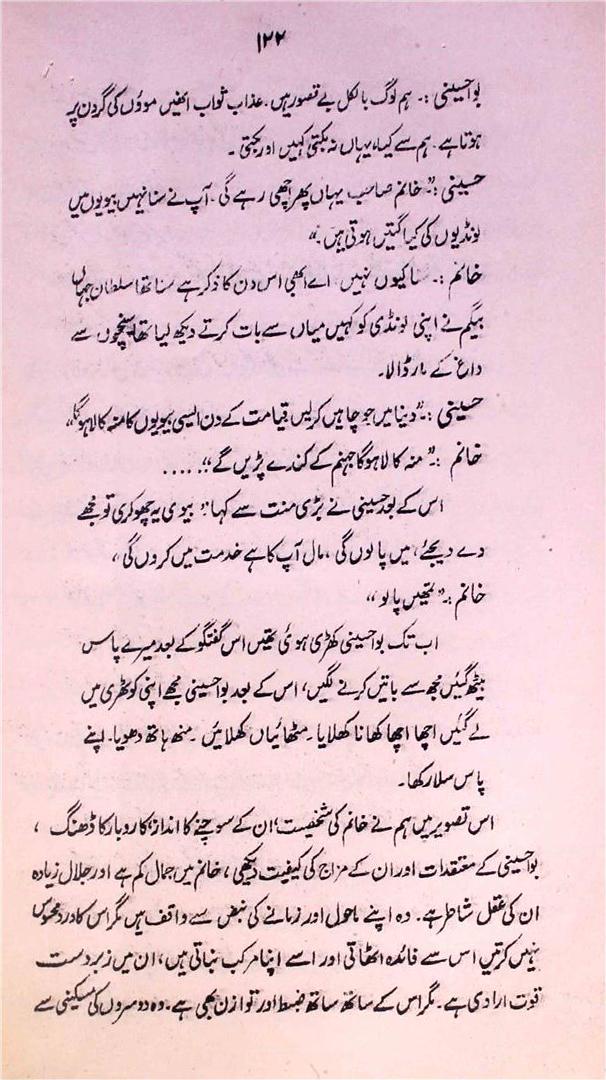 ۱۲۲
بوا حسینی :۔ ہم لوگ بالکل بے قصور ہیں۔ عذاب ثواب انھیں موؤں کی گردن پر
ہوتا ہے۔ ہم سے کیا، یہاں نہ بکتی کہیں اور بکتی۔
حسینی :۔" خانم صاحب یہاں پھر اچھی رہے گی۔ آپ نے سنا نہیں بیویوں میں
لونڈیوں کی کیا گتیں ہوتی ہیں۔"
خانم :۔ سنا کیوں نہیں۔ اے ابھی اس دن کا ذکر ہے سنا تھا سلطان جہاں
بیگم نے اپنی لونڈی کو کہیں میاں سے بات کرتے دیکھ لیا تھا سیخچوں سے
داغ کے مار ڈالا۔
حسینی :۔" دنیا میں جو چاہیں کر لیں قیامت کے دن ایسی بیویوں کا منہ کالا ہوگا"
خانم :۔" منہ کالا ہوگا جہنم کے کندے پڑیں گے"۔ .....
اس کے بعد حسینی نے بڑی منت سے کہا" بیوی یہ چھوکری تو مجھے
دے دیجئے، میں پالوں گی، مال آپ کا ہے خدمت میں کروں گی،
خانم :۔" تمھیں پالو"
اب تک بوا حسینی کھڑی ہوئی تھیں اس گفتگو کے بعد میرے پاس
بیٹھ گئیں مجھ سے باتیں کرنے لگیں، اس کے بعد بوا حسینی مجھے اپنی کوٹھری میں
لے گئیں اچھا اچھا کھانا کھلایا۔ مٹھائیاں کھلائیں۔ منھ ہاتھ دھویا۔ اپنے
پاس سلا رکھا۔
اس تصویر میں ہم نے خانم کی شخصیت، ان کے سوچنے کا انداز، کاروبار کا ڈھنگ،
بوا حسینی کے معتقدات اور ان کے مزاج کی کیفیت دیکھی، خانم میں جمال کم ہے اور جلال زیادہ
ان کی عقل شاطر ہے۔ وہ اپنے ماحول اور زمانے کی نبض سے واقف ہیں مگر اس کا درد محسوس
نہیں کرتیں اس سے فائدہ اٹھاتی اور اسے اپنا مرکب بناتی ہیں، ان میں زبردست
قوت ارادی ہے۔ مگر اس کے ساتھ ساتھ ضبط اور توازن بھی ہے۔ وہ دوسروں کی مسکینی سے